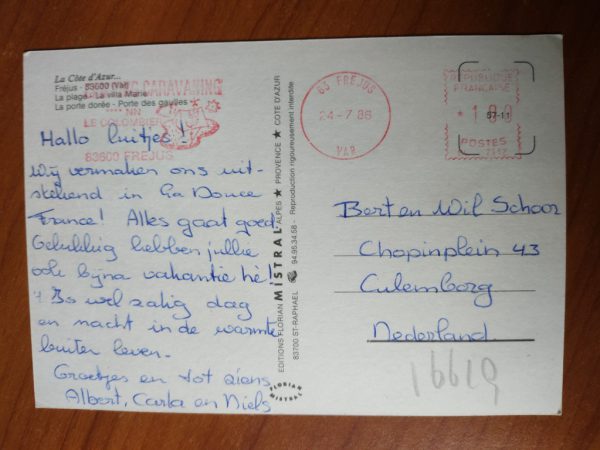 La Côte d'Azur...
Fréjus - 83600 (Var)
La plage - La villa Marie
La porte dorée - Porte des gaulles
CARAVANING
NN
LE COLOMBIER
83600 FREJUS
Hallo luitjes!
Wij vermaken ons uit-
stekend in La Douce
France! Alles gaat goed.
Gelukkig hebben jullie
ook bijna vakantie hè!
't Is wel zalig dag
en nacht in de warmte
buiten leven.
Groetjes en tot ziens
Albert, Carla en Niels
EDITIONS FLORIAN MISTRAL ALPES ★ PROVENCE ★ COTE D'AZUR
83700 ST-RAPHAEL 94.95.34.58 - Reproduction rigoureusement interdite
FLORIAN MISTRAL
83 FREJUS
24-7 86
VAR
REPUBLIQUE
FRANÇAISE
87-11
POSTES
Bert en Wil Schoor
Chopinplein 43
Culemborg
Nederland